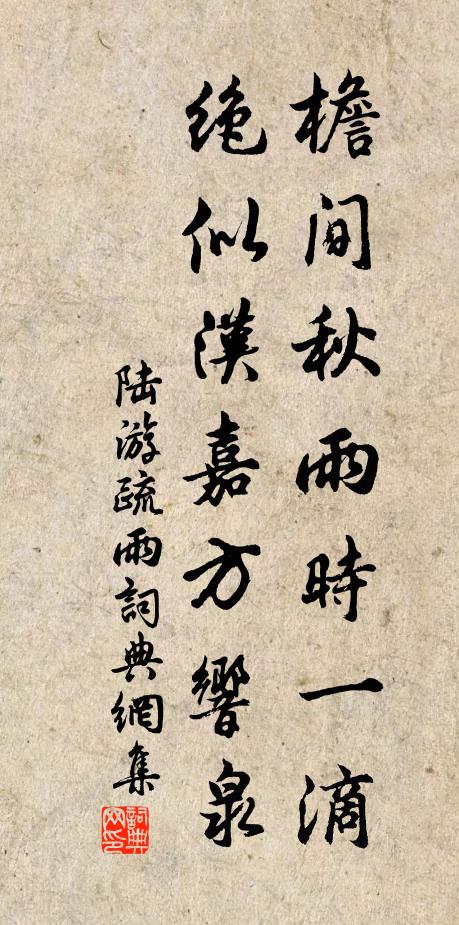 檐间秋雨時一滴
绝似漢嘉方響泉
陆游疏雨詞典網集
詞典网印